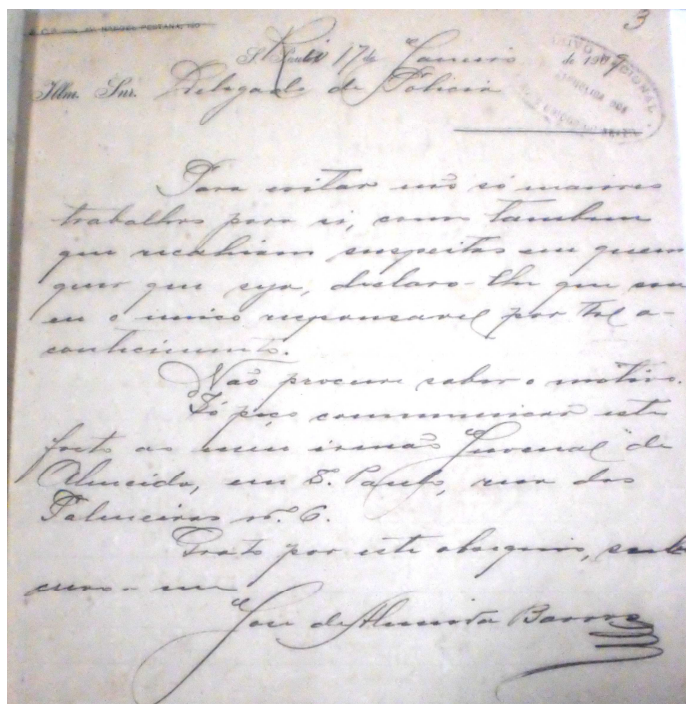 3
S. Paulo Rio 17 de Janeiro de 1909
Illm. Snr. Delegado de Policia
Para evitar não só maiores
trabalhos para si, como tambem
que recahiam suspeitas em quem
quer que seja, declaro-lhe que sou
eu o unico responsavel por tal a-
contecimento.
Não procure saber o motivo.
Só peço communicar este
facto ao meu irmão Juvenal de
Almeida, em S. Paulo, rua das
Palmeiras nº 6.
Grato por este obsequio, subs
crevo-me
José de Almeida Barros